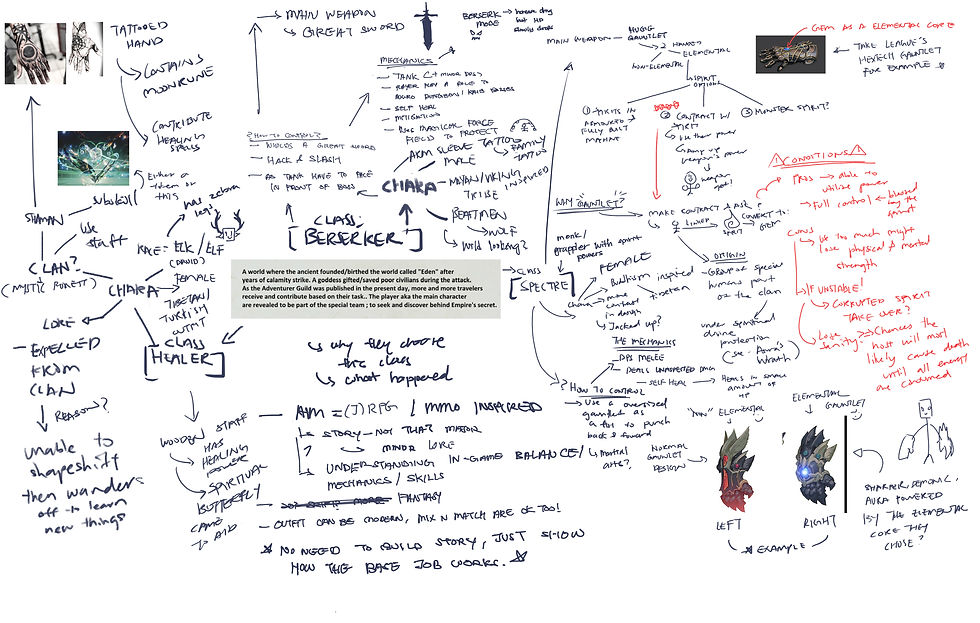 TATTOOED
HAND
CONTAINS
MOONRUNE
CONTRIBUTE
HEALING
SPELLS
Either a
token or
this
SHAMAN
subskill
use
staff
CLAN?
(MYSTIC FOREST)
LORE
- EXPELLED
FROM
CLAN
REASON?
unable to
shapeshift
then wanders
off to learn
new things
has zebra
legs
RACE = ELK / ELF
(DRUID)
CHARA
FEMALE
TIBETAN /
TURKISH
OUTFIT
CLASS
[HEALER]
WOODEN STAFF
HAS
HEALING
POWER
SPIRITUAL
BUTTERFLY
CAME
TO AID
MAIN WEAPON
GREAT SWORD
BERSERK
MODE
MECHANICS
- TANK C+ minor DPS)
- SELF HEAL
- MITIGATION
- Has MAGICAL FORCE
FIELD TO PROTECT
? HOW TO CONTROL?
- WIELDS A GREAT SWORD
- HACK & SLASH
- AS TANK HAVE TO FACE
IN FRONT OF BOSS
ARM SLEEVE TATTOO
FAMILY
TATTOO
MALE
CHARA
MAYAN/VIKING INSPIRED
TRIBE
BEASTMEN
WOLF
Wild looking?
CLASS:
[BERSERKER]
A world where the ancient founded/birthed the world called "Eden" after
years of calamity strike. A goddess gifted/saved poor civilians during the attack.
As the Adventurer Guild was published in the present day, more and more travelers
receive and contribute based on their task.. The player aka the main character
are revealed to be part of the special team ; to seek and discover behind Empire's secret.
why they choose
this class
what happened
- AIM = (J)RPG / MMO INSPIRED
STORY - NOT THAT MAJOR
MINOR LORE
UNDERSTANDING IN-GAME BALANCE/
MECHANICS / SKILLS
FANTASY
- OUTFIT CAN BE MODERN, MIX N MATCH ARE OK TOO!
* NO NEED TO BUILD STORY, JUST SHOW
HOW THE BASE JOB WORKS.
MAIN WEAPON
HUGE
GAUNTLET
2 HANDS
ELEMENTAL
NON-ELEMENTAL
SPIRIT
OPTIONS
① SPIRITS IN
ARMORED &
FULLY BUILT
② CONTRACT W/
SPIRIT
use their power
③ MONSTER SPIRIT?
GEM AS A ELEMENTAL CORE
TAKE LEAGUE'S
HEXTECH GAUNTLET
FOR EXAMPLE
WHY GAUNTLET?
MAKE CONTRACT & ASK?
LINKED
SPIRIT
CONVERT TO:
GEM
monk/
grappler with spirit
powers
CLASS
[SPECTRE]
FEMALE
chara
Buddhism inspired
tibetan
more
contrast
in design
Jacked up?
ORIGIN
- GROUP OF SPECIAL
humans part
of the clan
under spiritual
divine
protection
(see - Asura's
Wrath)
THE MECHANICS
- DPS MELEE
- DEALS UNASPECTED DMG
- SELF HEAL
HEALS IN SMALL
AMOUNT OF
HP
? HOW TO CONTROL
- Use a oversized
gauntlet as
a tool to punch
back & forward
Martial
arts?
CONDITIONS
PROS → able to
utilise power
Full control ← blessed
by the
spirit
CONS
Use too much might
lose physical & mental
strength
IF UNSTABLE!
CORRUPTED SPIRIT
TAKE OVER?
Lose
sanity
Chances the
host will most
likely cause death
until all energy
are consumed
"NON" ELEMENTAL
ELEMENTAL
GAUNTLET
NORMAL
GAUNTLET
DESIGN
LEFT
RIGHT
* EXAMPLE
SHARPER, DEMONIC,
AURA POWERED
BY THE ELEMENTAL
CORE THEY
CHOSE?